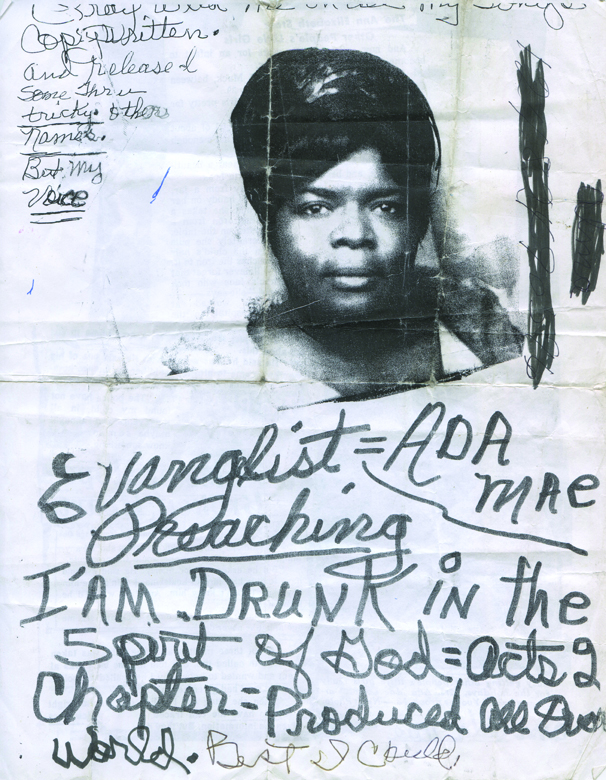 my songs
Copywritten.
and released
some thru
tricky. other
Names.
But my
Voice
Evanglist = ADA
MAE
Preaching
I'AM. DRUNK in the
Spirt of God = Acts 2
Chapter = Produced all over
world. Best I Could.